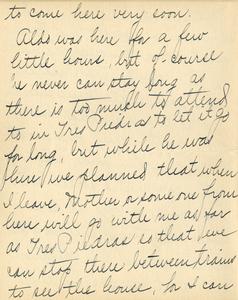 to come here very soon.
Aldo was here for a few
little hours, but of course
he never can stay long as
there is too much to attend
to in Tres Piedras to let it go
for long, but while he was
here we planned that when
I leave, Mother or some one from
here will go with me as far
as Tres Piedras so that we
can stop there between trains
to see the house, for I can